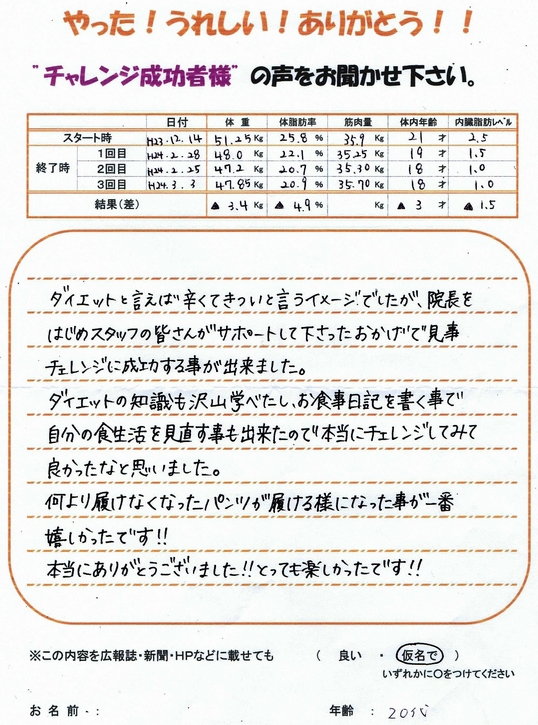 やった！うれしい！ありがとう！！
"チャレンジ成功者様" の声をお聞かせ下さい。
日付 体重 体脂肪率 筋肉量 体内年齢 内臓脂肪レベル
スタート時 H23.12.14 51.25Kg 25.8% 35.9Kg 21才 2.5
終了時 1回目 H24.2.28 48.0Kg 22.1% 35.25Kg 19才 1.5
2回目 H24.2.25 47.2Kg 20.7% 35.30Kg 18才 1.0
3回目 H24.3.3 47.85Kg 20.9% 35.70Kg 18才 1.0
結果(差) ▲3.4Kg ▲4.9% Kg ▲3才 ▲1.5
ダイエットと言えば辛くてきついと言うイメージでしたが、院長を
はじめスタッフの皆さんがサポートして下さったおかげで見事
チェレンジに成功する事が出来ました。
ダイエットの知識も沢山学べたし、お食事日記を書く事で
自分の食生活を見直す事も出来たので本当にチェレンジしてみて
良かったなと思いました。
何より履けなくなったパンツが履ける様になった事が一番
嬉しかったです!!
本当にありがとうございました!!とっても楽しかったです!!
※この内容を広報誌・新聞・HPなどに載せても （ 良い ・ 仮名で ）
いずれかに○をつけてください
お名前： 年齢：20代